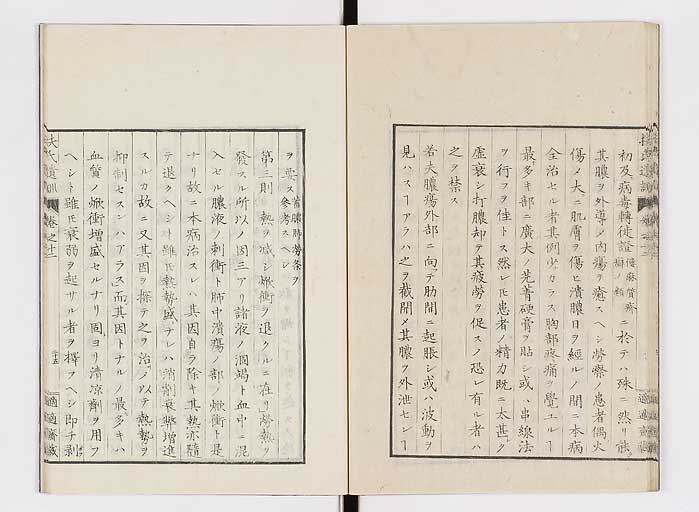 初及病毒轉徙證慢麻質斯ノ類ニ於テハ殊ニ然リ能
其膿ヲ外導メ内瘍ヲ癒スヘシ勞瘵ノ患者偶火
傷メ大ニ肌膚ヲ傷ヒ潰膿日ヲ經ルノ間ニ本病
全治セル者其例少カラス胸部疼痛ヲ覺エル
最多キ部ニ廣大ノ芫菁硬膏ヲ貼シ或ハ串線法
ヲ行フヲ佳トス然レ𪜈患者ノ精力既ニ太甚ク
虚衰シ打膿却テ其疲勞ヲ促スノ恐レ有ル者ハ
之ヲ禁ス
若夫膿瘍外部ニ向テ肋間ニ起脹シ或ハ波動ヲ
見ハスヿアラハ之ヲ截開メ其膿ヲ外泄セシヿ
ヲ要ス舊膿肺勞條ヲ參考スヘシ
第三則 熱ヲ減シ焮衝ヲ退クルニ在 勞熱ヲ
發スル所以ノ因三アリ諸液ノ涸竭ト血中ニ混
入セル膿液ノ刺衝ト肺中潰瘍ノ部ノ焮衝ト是
ナリ故ニ本病治スレハ其因自ラ除キ其熱亦隨
テ退クヘシト雖𪜈熱勢盛ナレハ消削衰弊増進
スルカ故ニ又其因ヲ探テ之ヲ治ノ以テ熱勢ヲ
抑制セスンハアラス而其因トナルノ最多キハ
血質ノ焮衝増盛セルナリ固ヨリ清凉劑ヲ用フ
ヘシト雖𪜈衰弱ヲ起サル者ヲ擇フヘシ即チ剥
扶氏遺訓 卷之十二 十五 適適齋藏